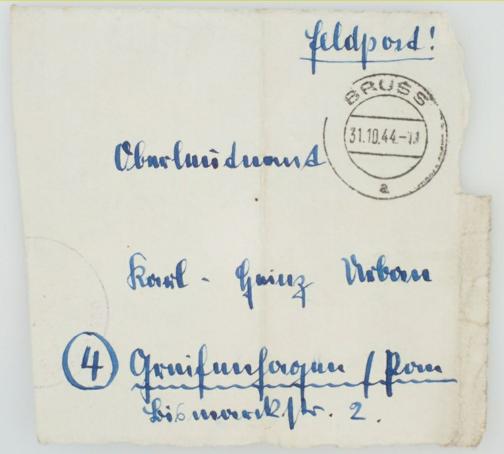 Feldpost!
BRUSS
31.10.44.-
a
Oberleutnant
Karl-Heinz Urban
4 Greifenhagen / Pom
Bismarckstr. 2.